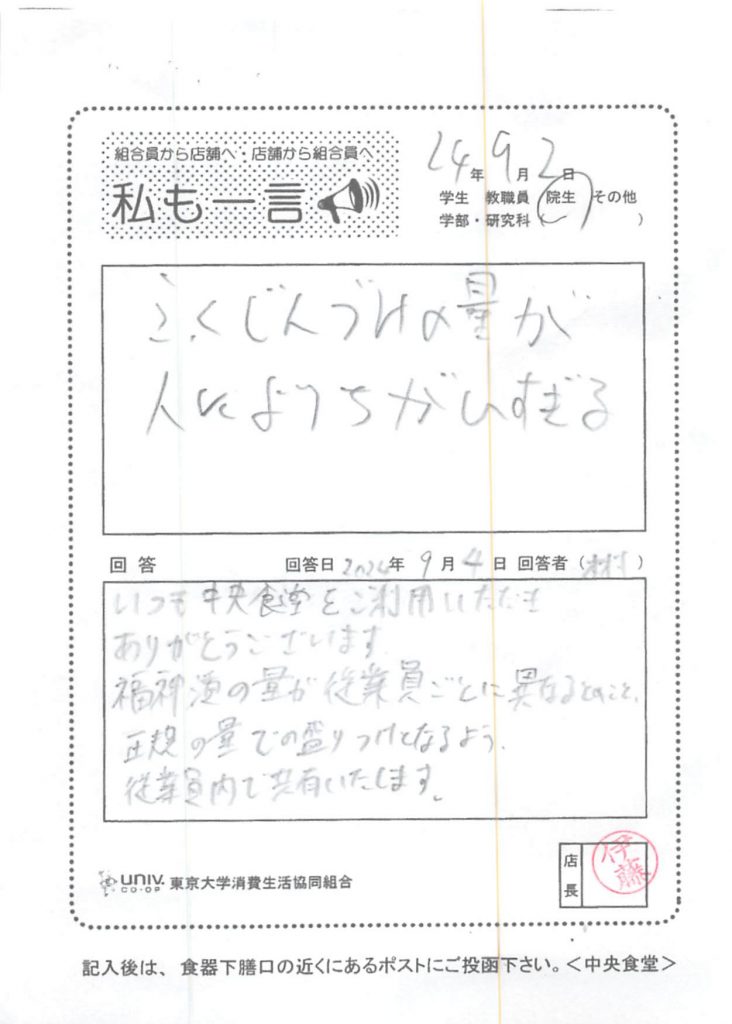 組合員から店舗へ・店舗から組合員へ
私も一言
24年9月2日
学生 教職員 院生 その他
学部・研究科( )
ふくじんづけの量が
人によりちがいすぎる
回答 回答日 2024年 9月 4日 回答者( )
いつも中央食堂をご利用いただき
ありがとうございます。
福神漬の量が従業員ごとに異なるとのこと、
正規の量での盛りつけとなるよう、
従業員内で共有いたします。
店長 伊藤
UNIV. CO-OP 東京大学消費生活協同組合
記入後は、食器下膳口の近くにあるポストにご投函下さい。<中央食堂>